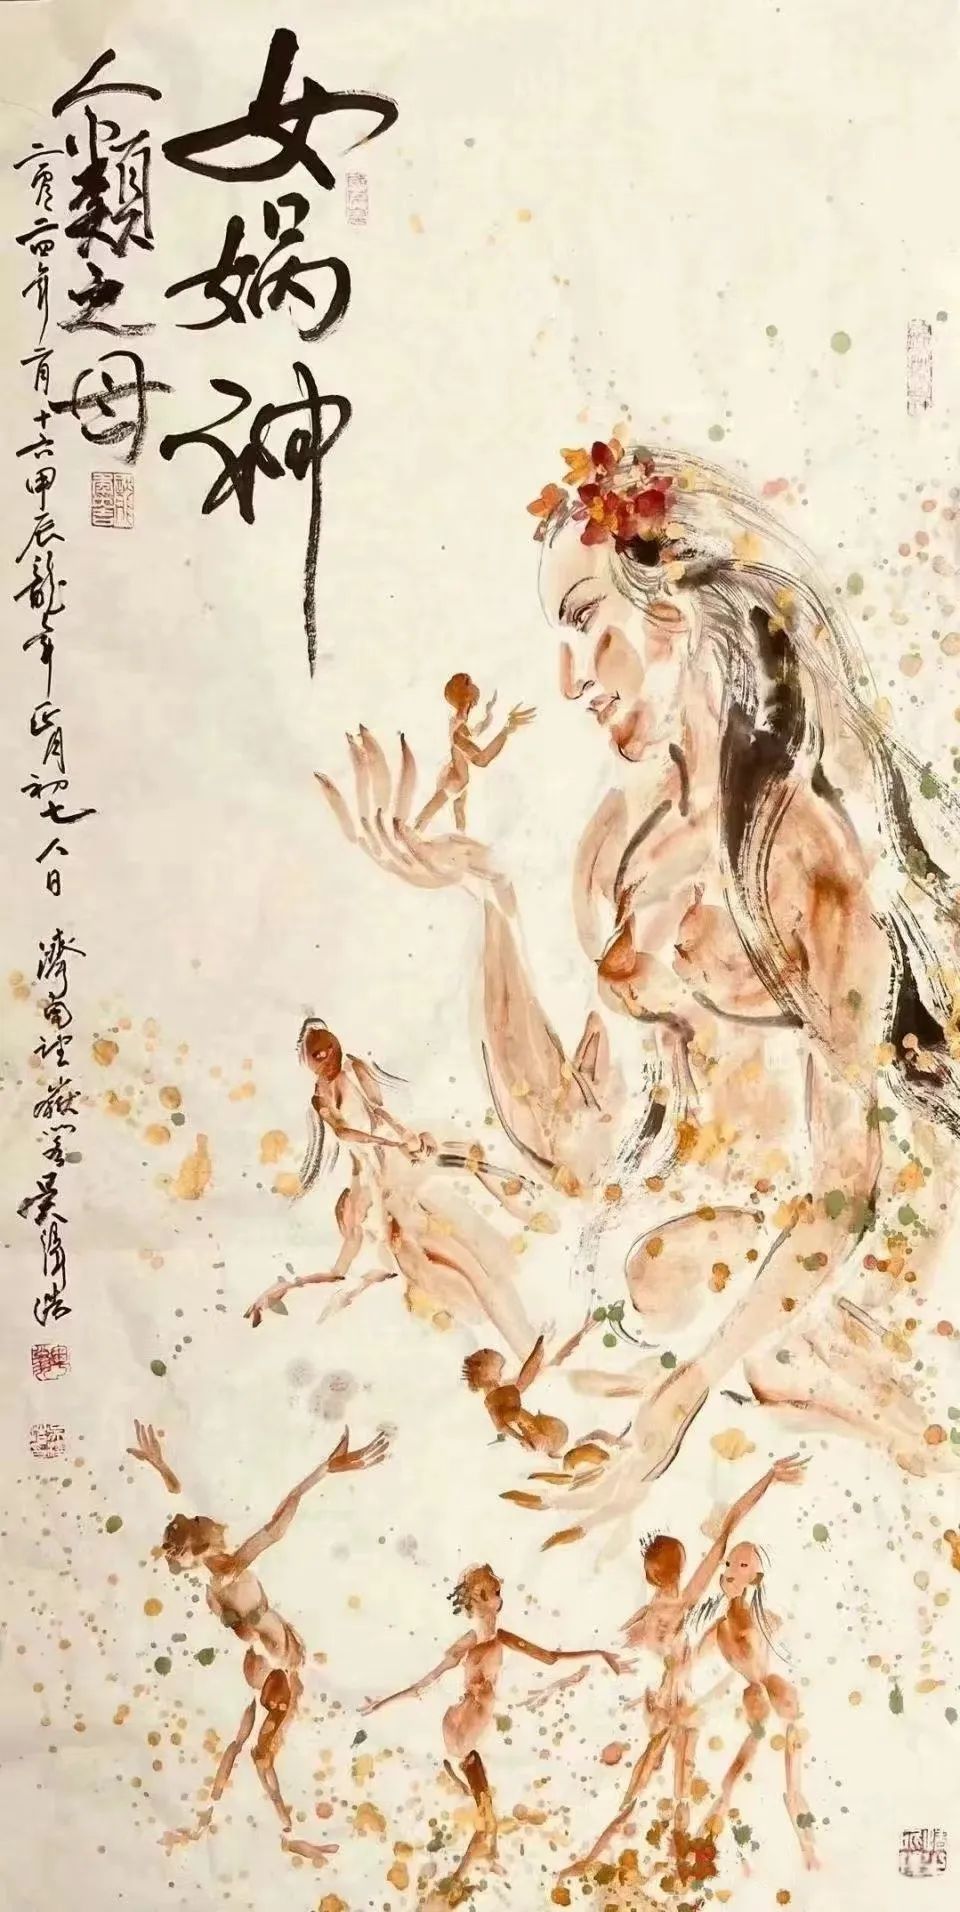 女娲神
人類之母
二零二四年二月十六甲辰龍年正月初七人日 濟南望嶽閣吴泽浩